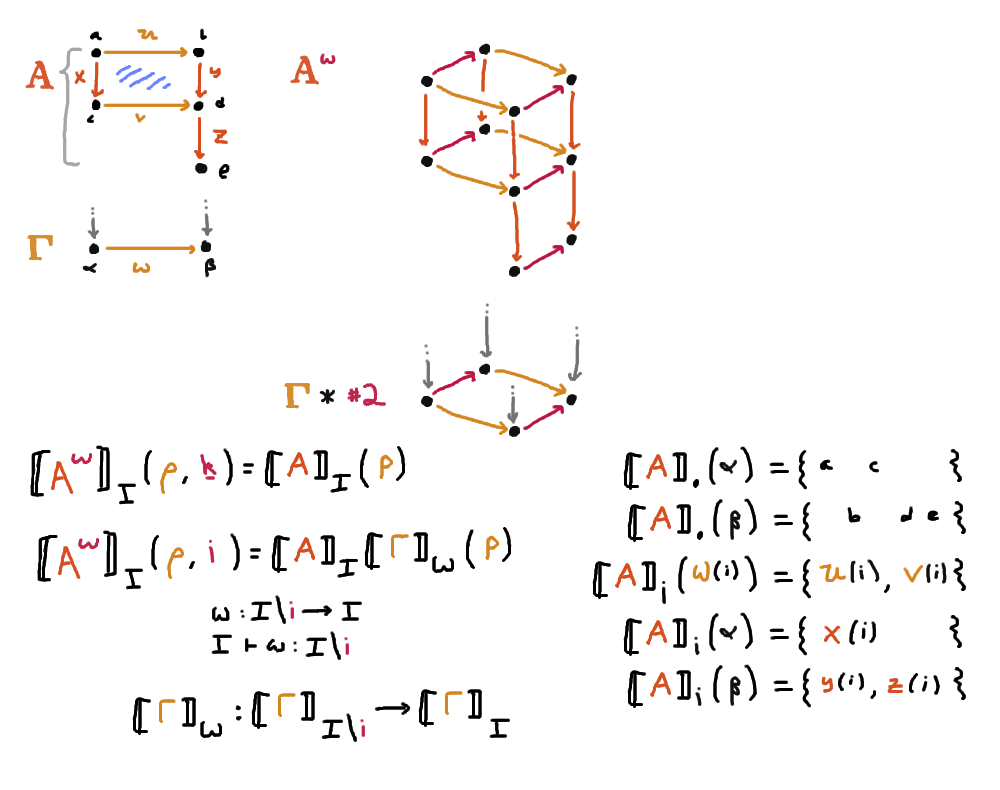 a u b
A x y A^ω
c v d
z
e
Γ
α ω β
Γ * #2
⟦A^ω⟧_I (ρ, k) = ⟦A⟧_I (ρ)
⟦A^ω⟧_I (ρ, i) = ⟦A⟧_I ⟦Γ⟧_ω (ρ)
ω : I\i → I
I ⊢ ω : I\i
⟦Γ⟧_ω : ⟦Γ⟧_{I\i} → ⟦Γ⟧_I
⟦A⟧. (α) = { a c }
⟦A⟧. (β) = { b d e }
⟦A⟧_i (ω(i)) = { u(i), v(i) }
⟦A⟧_i (α) = { x(i) }
⟦A⟧_i (β) = { y(i), z(i) }